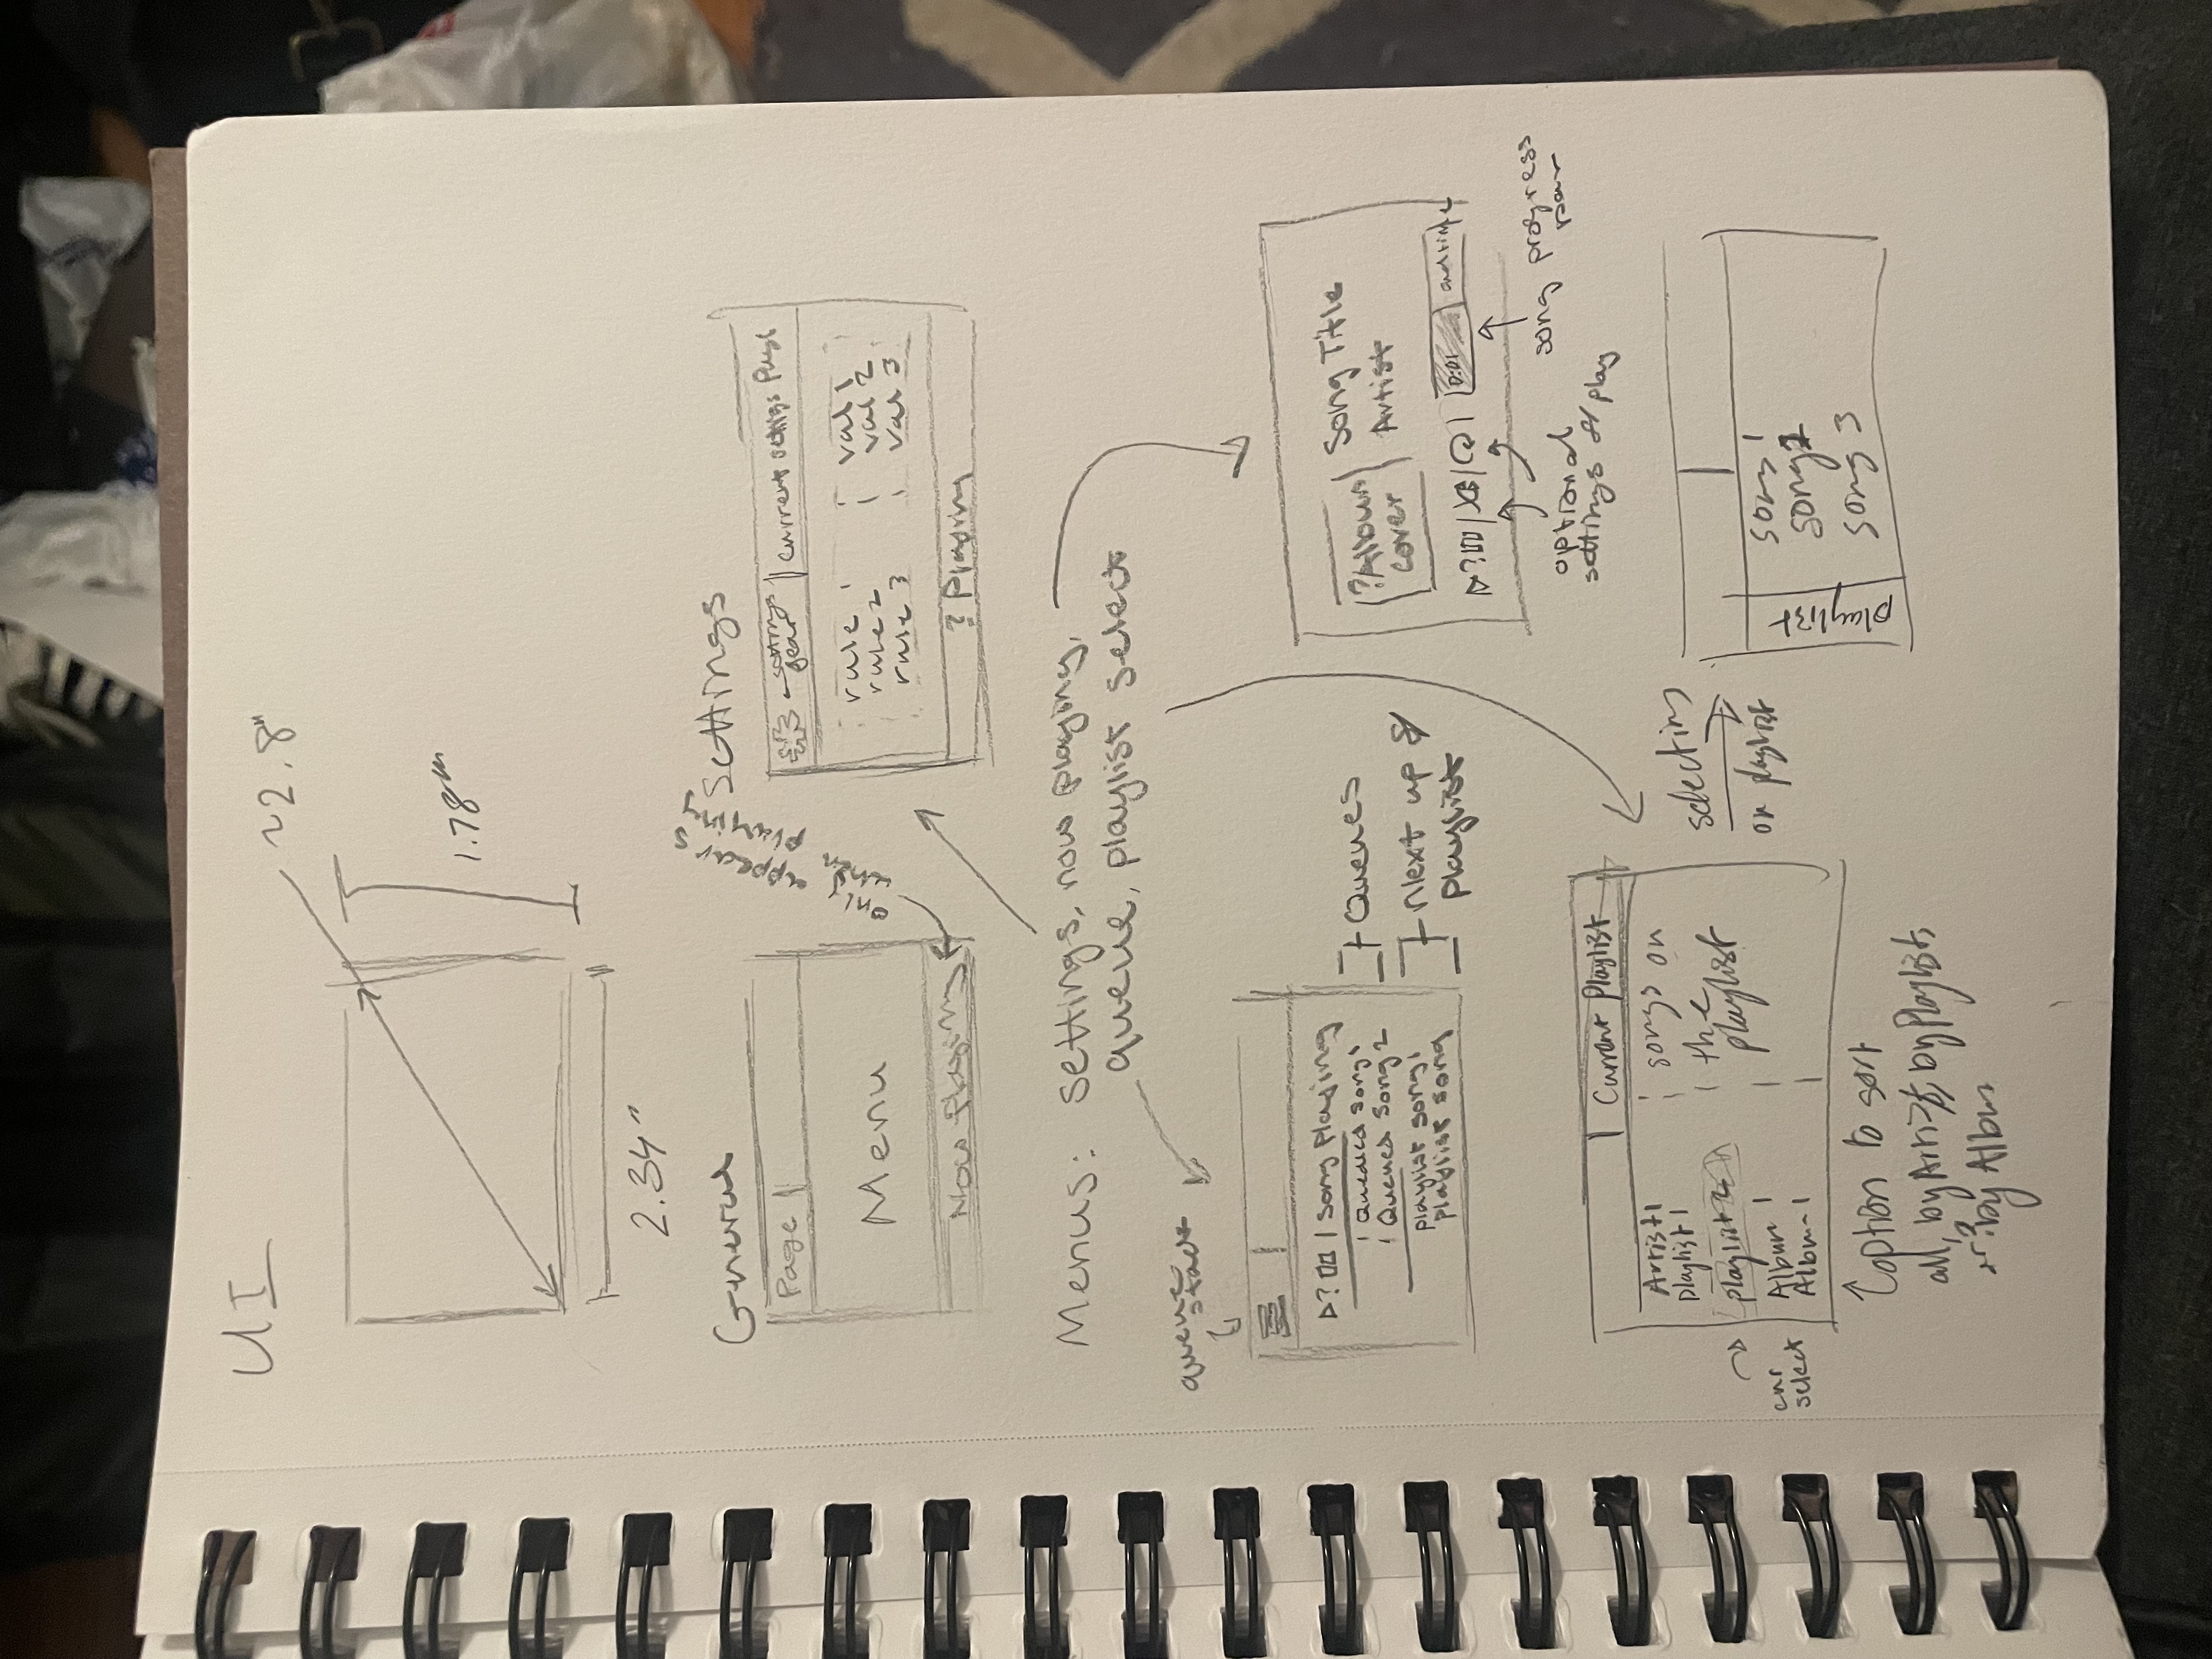 UI
~2.8"
1.78"
2.34"
General
only when appears playing
Page |
Menu
Now Playing
Settings
settings gear | Current settings Page
rule 1 | val 1
rule 2 | val 2
rule 3 | val 3
? Playing
Menus: settings, now playing,
queue, playlist select
queue
stack
▷?▯▯ | Song Playing
| Queued Song 1
| Queued Song 2
playlist song 1
playlist song
Queues
Next up of
playlist
?Album
cover
Song Title
Artist
▷?▯▯
0:01
end time
optional
settings of play
song progress
bar
| Current Playlist
Artist 1
Playlist 1
playlist 2
Album 1
Album 1
songs on
the
playlist
cur
select
option to sort
all, by Artist, by Playlist,
or? by Album
selecting
on playlist
playlist
song 1
song 2
song 3